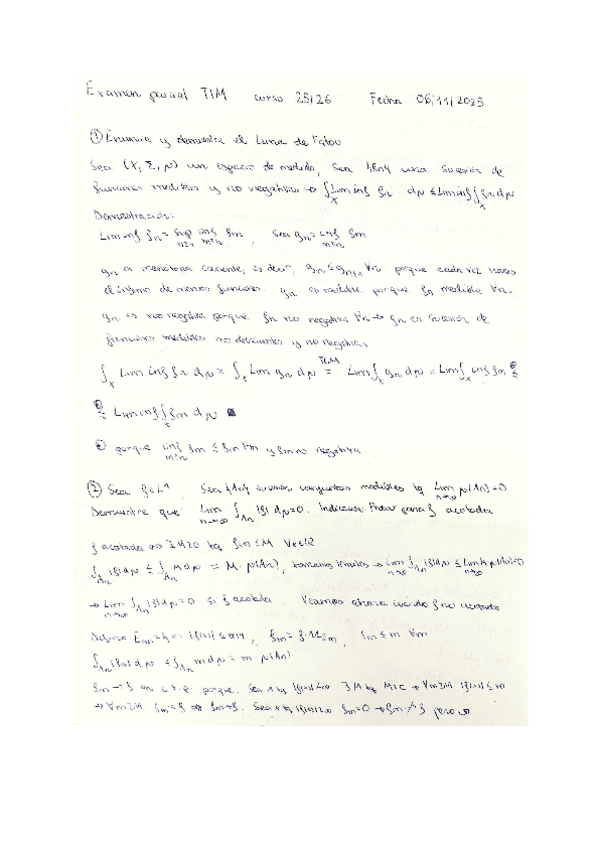 Examen parcial TIM curso 25/26 Fecha 06/11/2025
① Enuncia y demuestra el Lema de Fatou
Sea (X, Σ, μ) un espacio de medida, sea {fn} una sucesión de
funciones medibles y no negativas → ∫_X Lim inf fn dμ ≤ Lim inf ∫_X fn dμ
Demostración:
Lim inf fn = sup_{n≥1} inf_{m≥n} fm, sea gn = inf_{m≥n} fm
gn es monótona creciente, es decir, gn ≤ gn+1 ∀n porque cada vez
el ínfimo de menos funciones. gn es medible porque fn medible ∀n.
gn es no negativa porque fn no negativa ∀n → gn es sucesión de
funciones medibles no decrecientes y no negativas
∫_X Lim inf fn dμ = ∫_X Lim gn dμ = Lim ∫_X gn dμ = Lim ∫_X inf fm ≤
≤ Lim inf ∫ fm dμ
porque inf_{m≥n} fm ≤ fm ∀m y fm no negativa
② Sea f ∈ L¹. Sea {An} sucesión conjuntos medibles tq Lim_{n→∞} μ(An)=0
Demuestre que Lim_{n→∞} ∫_{An} |f| dμ = 0. Indicación: Probar para f acotada
f acotada ⇒ ∃ M≥0 tq f(x) ≤ M ∀x∈ℝ
∫_{An} |f| dμ ≤ ∫_{An} M dμ = M·μ(An), tomamos límites → Lim_{n→∞} ∫_{An} |f| dμ ≤ Lim_{n→∞} M·μ(An)=0
→ Lim_{n→∞} ∫_{An} |f| dμ = 0 si f acotada. Veamos ahora cuando f no acotada
Defino Em = {x: |f(x)| ≤ m}, fm = f·1_{Em}, fm ≤ m ∀m
∫_{An} |fm| dμ ≤ ∫_{An} m dμ = m μ(An)
fm → f en c.t.p. porque: Sea x tq |f(x)|<∞ ∃ M tq → ∀m≥M |f(x)| ≤ m
→ ∀m≥M fm = f ⇒ fm→f. Sea x tq |f(x)|=∞ fm=0 → fm↛f pero